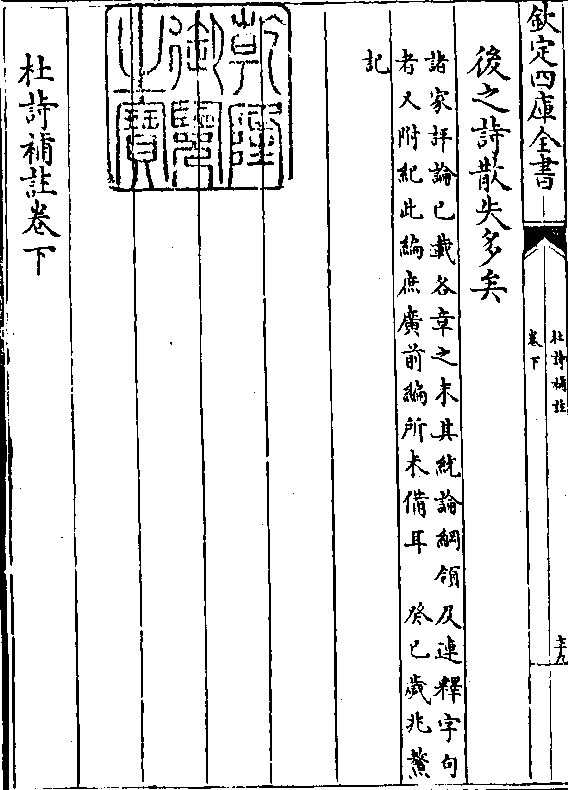 欽定四庫全書
杜詩補註
卷下
後之詩散失多矣
諸家評論已載各章之末其統論綱領及連釋字句
者又附紀此編庶廣前編所未備耳　癸巳歲兆鰲
記
乾隆
御覽
之寶
杜詩補註卷下